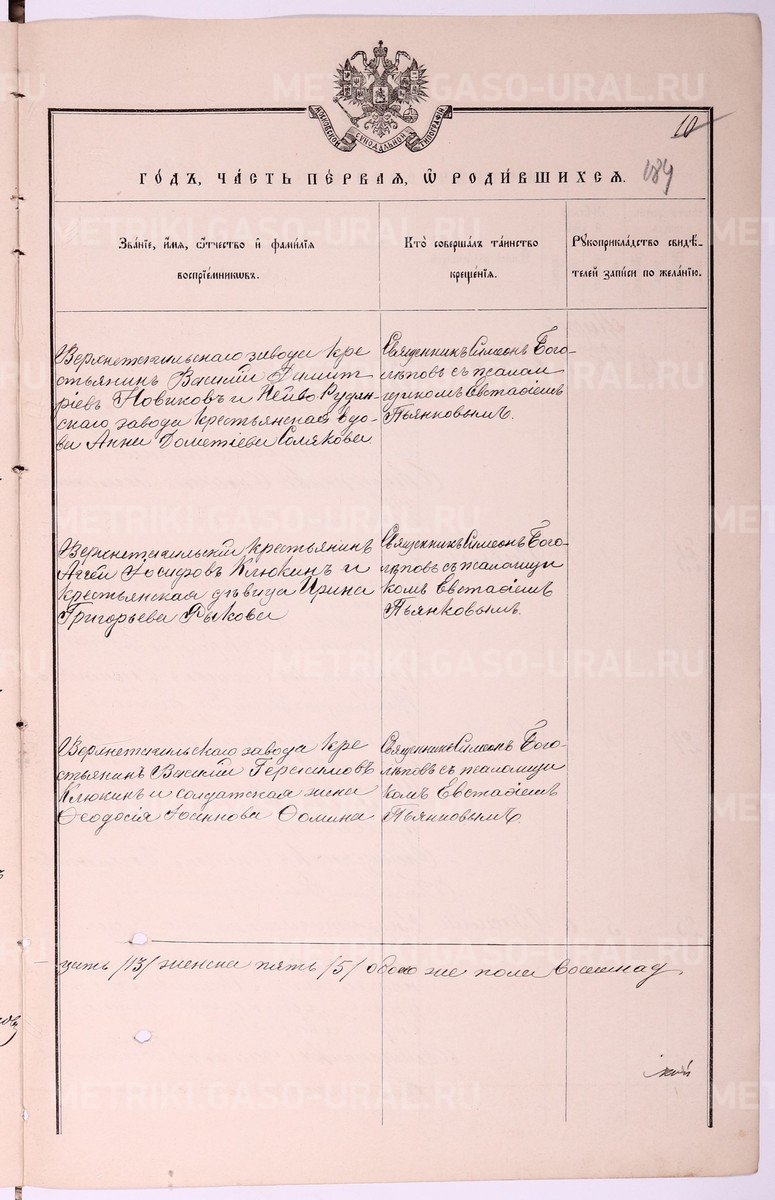 МОСКОВСКОЙ СИНОДАЛЬНОЙ ТИПОГРАФІИ
10
184
ГОДЪ, ЧАСТЬ ПЕРВАЯ, Ѿ РОДИВШИХСЯ.
Званіе, имя, отчество и фамилія
воспріемниковъ.
Кто совершалъ таинство
крещенія.
Рукоприкладство свидѣ-
телей записи по желанію.
Верхнетагильскаго завода кре
стьянинъ Василій Димит
ріевъ Новиковъ и Нейво Рудян
скаго завода крестьянская вдо-
ва Анна Дометіева Солякова
Священникъ Симеонъ Бого-
лѣповъ съ псалом
щикомъ Евстафіемъ
Пьянковымъ.
Верхнетагильскій крестьянинъ
Агей Іосифовъ Клюкинъ и
крестьянская дѣвица Ирина
Григорьева Рыкова
Священникъ Симеонъ Бого-
лѣповъ съ псаломщи
комъ Евстафіемъ
Пьянковымъ.
Верхнетагильскаго завода кре
стьянинъ Василій Герасимовъ
Клюкинъ и солдатская жена
Ѳеодосія Іоаннова Ѳомина
Священникъ Симеонъ Бого-
лѣповъ съ псаломщи
комъ Евстафіемъ
Пьянковымъ.
цать /13/ женска пять /5/ обоего же пола восемнад
METRIKI.GASO-URAL.RU